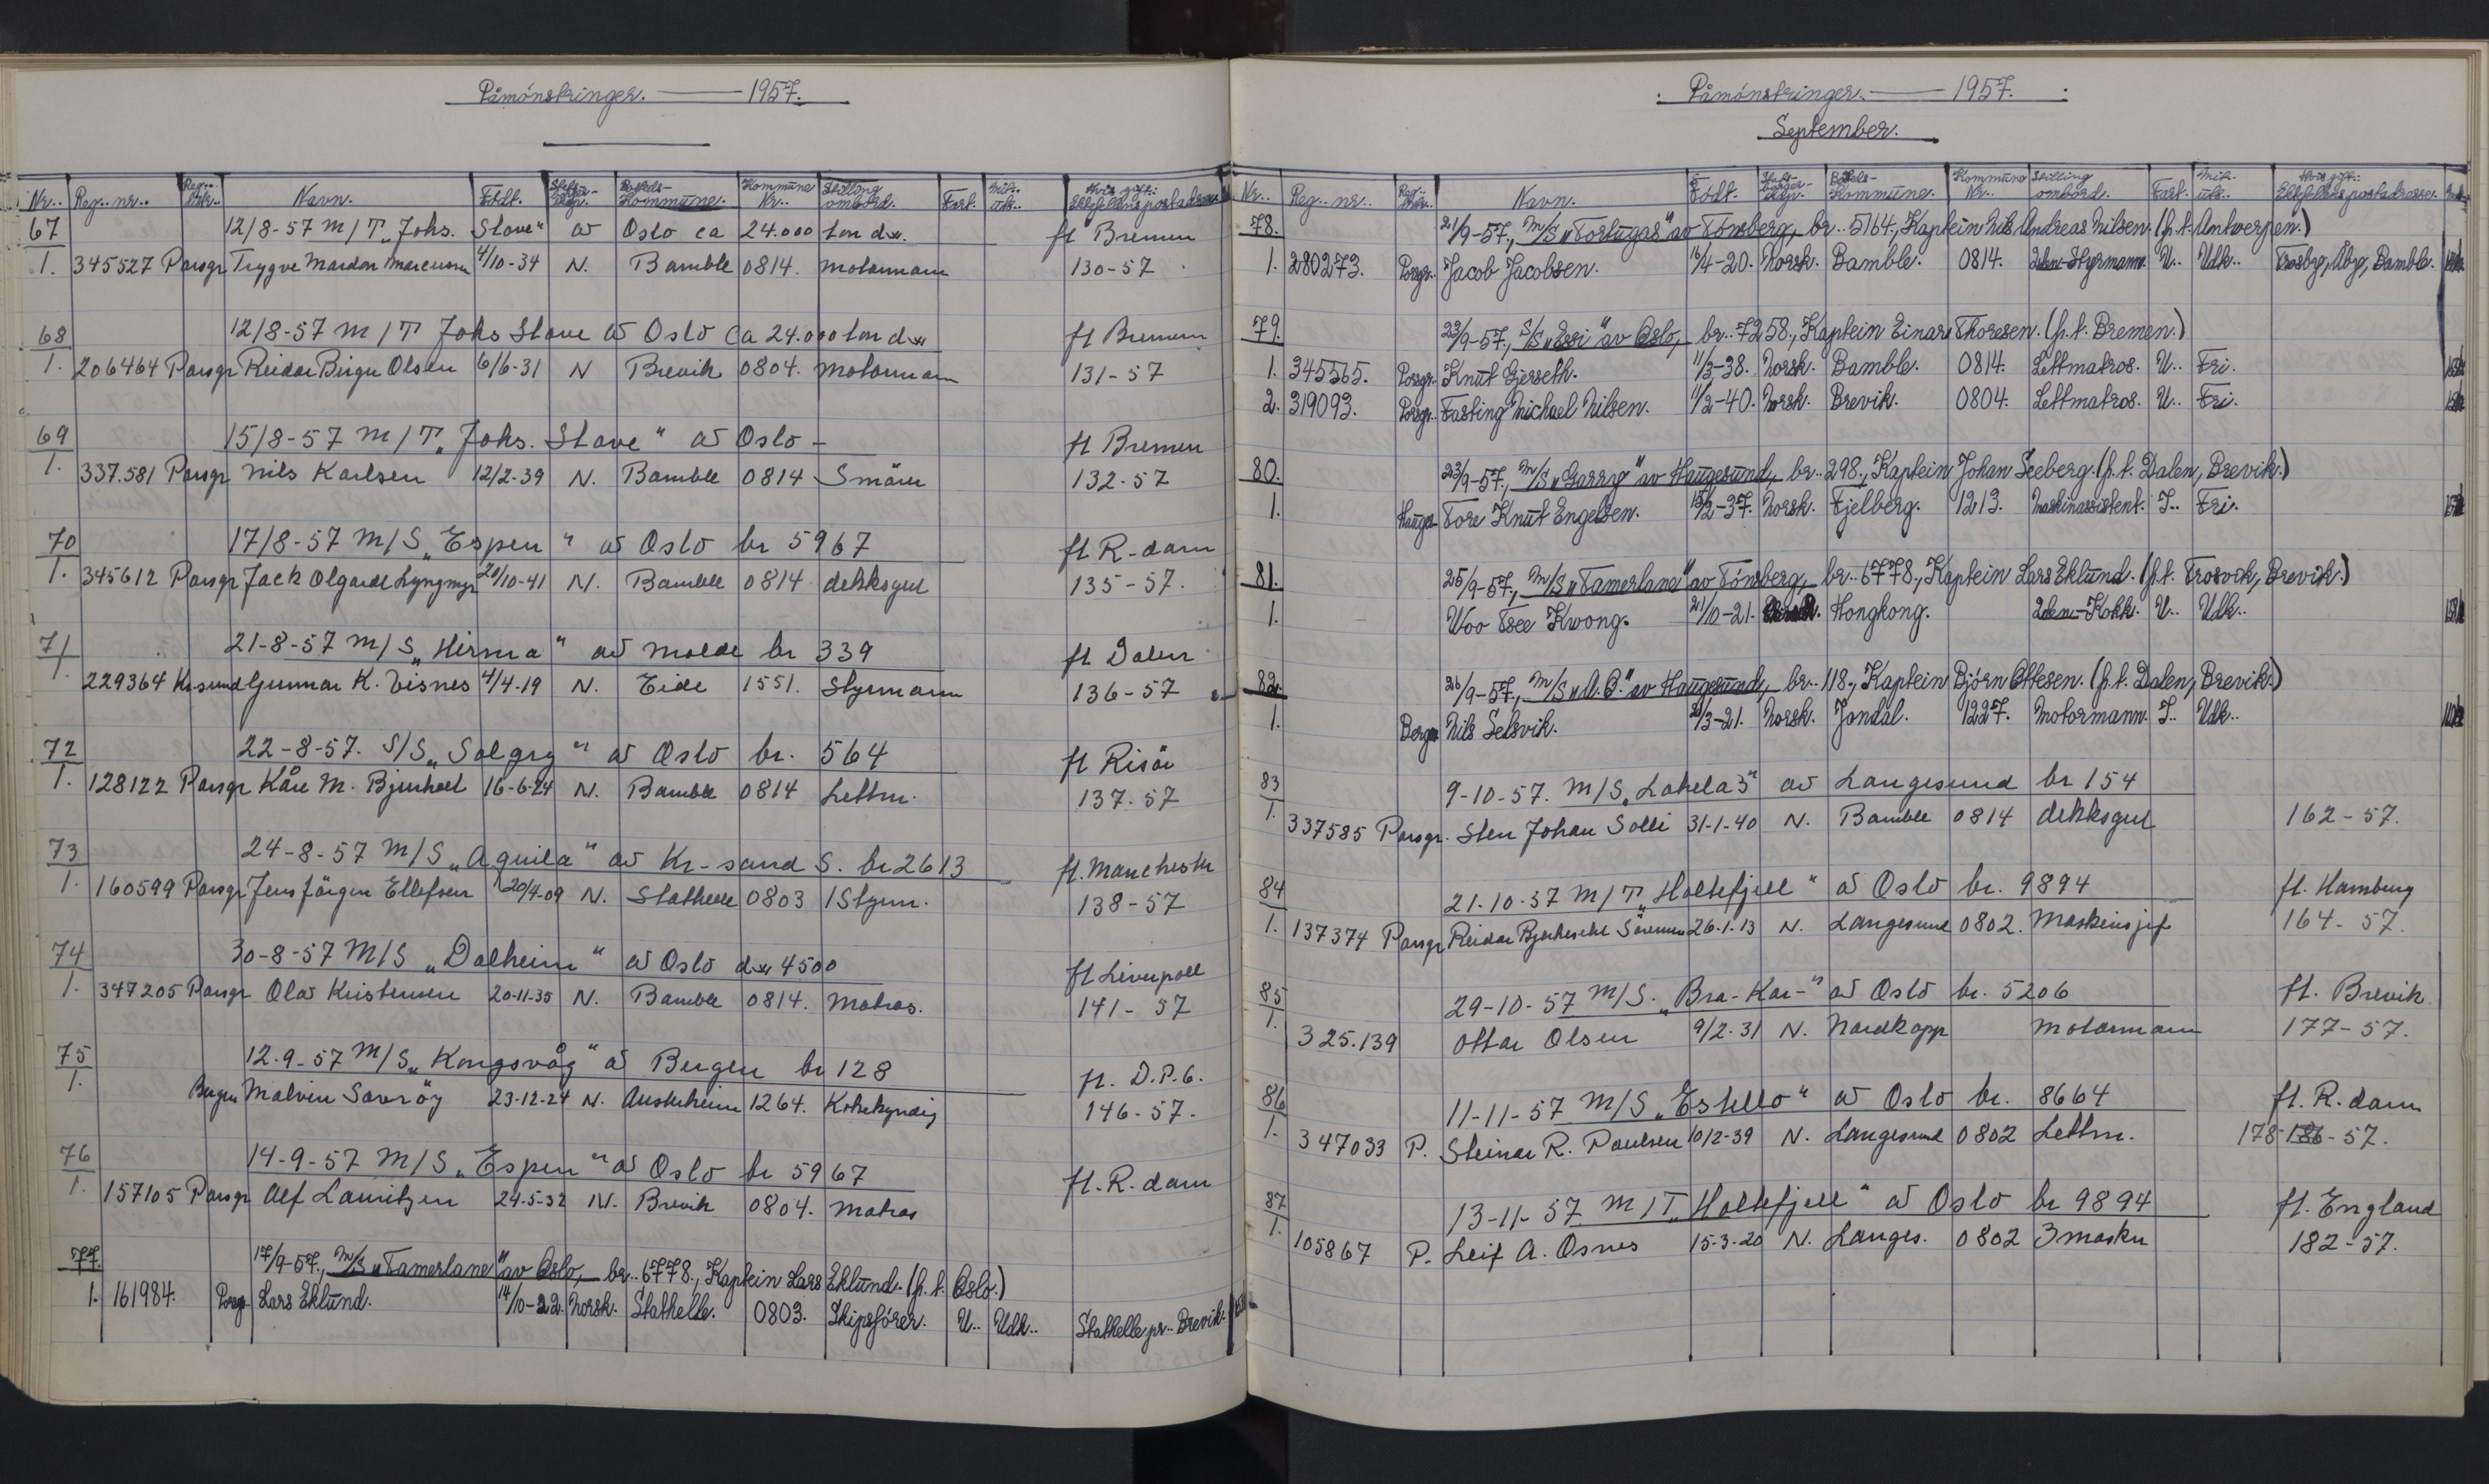 Påmönstringer. — 1957.
Nr.. Reg.. nr.. Reg.. Navn. Födt. Kommune. Kommune Nr.. Stilling ombord. Fart. Mil.. utd.. Hvis gift: Ektefellens postadresse
67 12/8-57 M/T „Johs. Stove" av Oslo ca 24.000 ton d.w. ft Bremen
1. 345527 Porsgr Trygve Mardon Marcussen 4/10-34 N. Bamble 0814. motormann 130-57
68 12/8-57 M/T Johs Stove av Oslo ca 24.000 ton d.w. ft Bremen
1. 206464 Porsgr Reidar Birger Olsen 6/6-31 N Brevik 0804. motormann 131-57
69 15/8-57 M/T „Johs. Stove" av Oslo - ft Bremen
1. 337.581 Porsgr Nils Karlsen 12/2-39 N. Bamble 0814 Smörer 132-57
70 17/8-57 M/S „Espen" av Oslo br 5967 ft R-dam
1. 345612 Porsgr Jack Olgard Lyngmyr 20/10-41 N. Bamble 0814 dekksgut 135-57.
71 21-8-57 M/S „Hirma" av Molde br 339 ft Dalen
1. 229364 Kr.sund Gunnar K. Visnes 4/4-19 N. Eide 1551. Styrmann 136-57
72 22-8-57. S/S „Solgry" av Oslo br. 564 ft Risör
1. 128122 Porsgr Kåre M. Bjerkholt 16-6-24 N. Bamble 0814 Lettm. 137-57
73 24-8-57 M/S „Aquila" av Kr-sand S. br 2613 ft. Manchester
1. 160599 Porsgr Jens Jörgen Ellefsen 20/4-09 N. Stathelle 0803 1 Styrm. 138-57
74 30-8-57 M/S „Dalheim" av Oslo d.w 4500 ft Liverpoll
1. 347205 Porsgr Olav Kristensen 20-11-35 N. Bamble 0814. Matros. 141-57
75 12-9-57 M/S „Kongsvåg" av Bergen br 128 ft. D.P.C.
1. Bergen Malvin Savröy 23-12-24 N. Austrheim 1264. Kokekyndig 146-57.
76 14-9-57 M/S „Espen" av Oslo br 5967 ft. R-dam
1. 157105 Porsgr Alf Lauritzen 24-5-32 N. Brevik 0804. Matros
77. 17/9-57., M/S „Tamerlane" av Oslo, br.. 6778., Kaptein Lars Eklund. (p.t. Oslo.)
1. 161984. Porsgr. Lars Eklund. 14/10-22. Norsk. Stathelle. 0803. Skipsförer. U.. Udk.. Stathelle pr.. Brevik.
Påmönstringer. — 1957.
September.
Nr.. Reg.. nr.. Reg.. Navn. Födt. Kommune. Kommune Nr.. Stilling ombord. Fart. Mil.. utd.. Hvis gift: Ektefellens postadresse.
78. 21/9-57., M/S „Tortugas" av Tönsberg, br.. 5164., Kaptein Nils Andreas Nilsen. (p.t. Antwerpen.)
1. 280273. Porsgr. Jacob Jacobsen. 16/4-20. Norsk. Bamble. 0814. 2den-Styrmann. U.. Udk.. Trosby, Åby, Bamble.
79. 23/9-57., S/S „Essi" av Oslo, br.. 7258., Kaptein Einar Thoresen. (p.t. Bremen.)
1. 345565. Porsgr. Knut Gjerseth. 11/3-38. Norsk. Bamble. 0814. Lettmatros. U.. Fri.
2. 319093. Porsgr. Fasting Michael Nilsen. 11/2-40. Norsk. Brevik. 0804. Lettmatros. U.. Fri.
80. 23/9-57., M/S „Garry" av Haugesund, br.. 298., Kaptein Johan Seeberg. (p.t. Dalen, Brevik.)
1. Hauges. Tore Knut Engelsen. 15/2-37. Norsk. Fjelberg. 1213. Maskinassistent. I.. Fri.
81. 25/9-57., M/S „Tamerlane" av Tönsberg, br.. 6778., Kaptein Lars Eklund. (p.t. Trosvik, Brevik.)
1. Woo Tsee Kwong. 21/10-21. Hongkong. 2den-Kokk. U.. Udk..
82. 26/9-57., M/S „A.O." av Haugesund, br.. 118., Kaptein Björn Ottesen. (p.t. Dalen, Brevik.)
1. Bergen Nils Selsvik. 21/3-21. Norsk. Jondal. 1227. Motormann. I.. Udk..
83 9-10-57. M/S „Lakela 3" av Langesund br 154
1. 337585 Porsgr. Sten Johan Solli 31-1-40 N. Bamble 0814 dekksgut 162-57.
84 21-10-57 M/T „Holtefjell" av Oslo br. 9894 ft. Hamburg
1. 137374 Porsgr Reidar Sörensen 26-1-13 N. Langesund 0802. Maskinsjef 164-57.
85 29-10-57 M/S. „Bra-Kar-" av Oslo br. 5206 ft. Brevik
1. 325.139 Ottar Olsen 9/2-31 N. Nordkapp Motormann 177-57.
86 11-11-57 M/S „Estello" av Oslo br. 8664 ft. R.dam
1. 347033 P. Steinar R. Paulsen 10/2-39 N. Langesund 0802 Lettm. 178-186-57.
87 13-11-57 M/T „Holtefjell" av Oslo br 9894 ft. England
1. 105867 P. Leif A. Osnes 15-3-20 N. Langes. 0802 3 maskn 182-57.